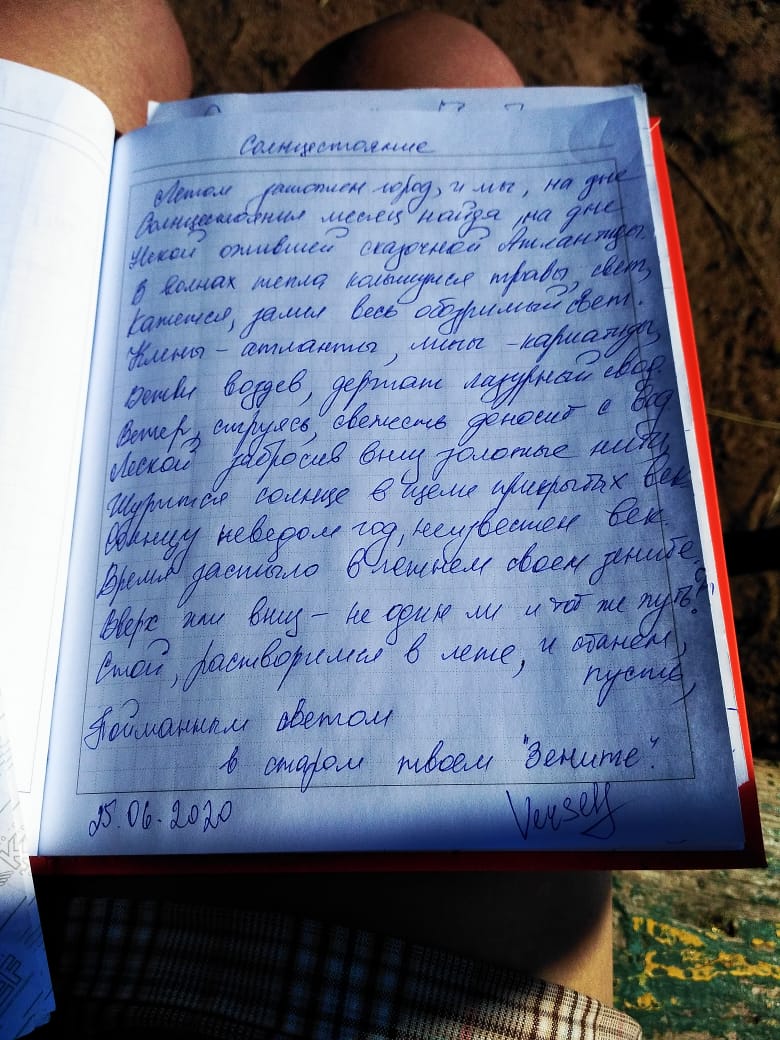 Солнцестояние
Летом затоплен город, и мы, на дне
Солнцестояния месяц найдя, на дне
Некой ожившей сказочной Атлантиды.
В волнах тепла колышутся травы, свет,
Кажется, залил весь обозримый свет.
Клены - атланты, липы - кариатиды,
Ветви воздев, держат лазурный свод.
Ветер, струясь, свежесть доносит с вод
Леской забросив вниз золотые нити,
Щурится солнце в щели прикрытых век.
Солнцу неведом год, неизвестен век.
Время застыло в летнем своем зените.
Вверх или вниз - не один ли и тот же путь?
Стой, растворимся в лете, и станем,
пусть,
Пойманным светом
в старом твоем "Зените".
25.06.2020
Verself